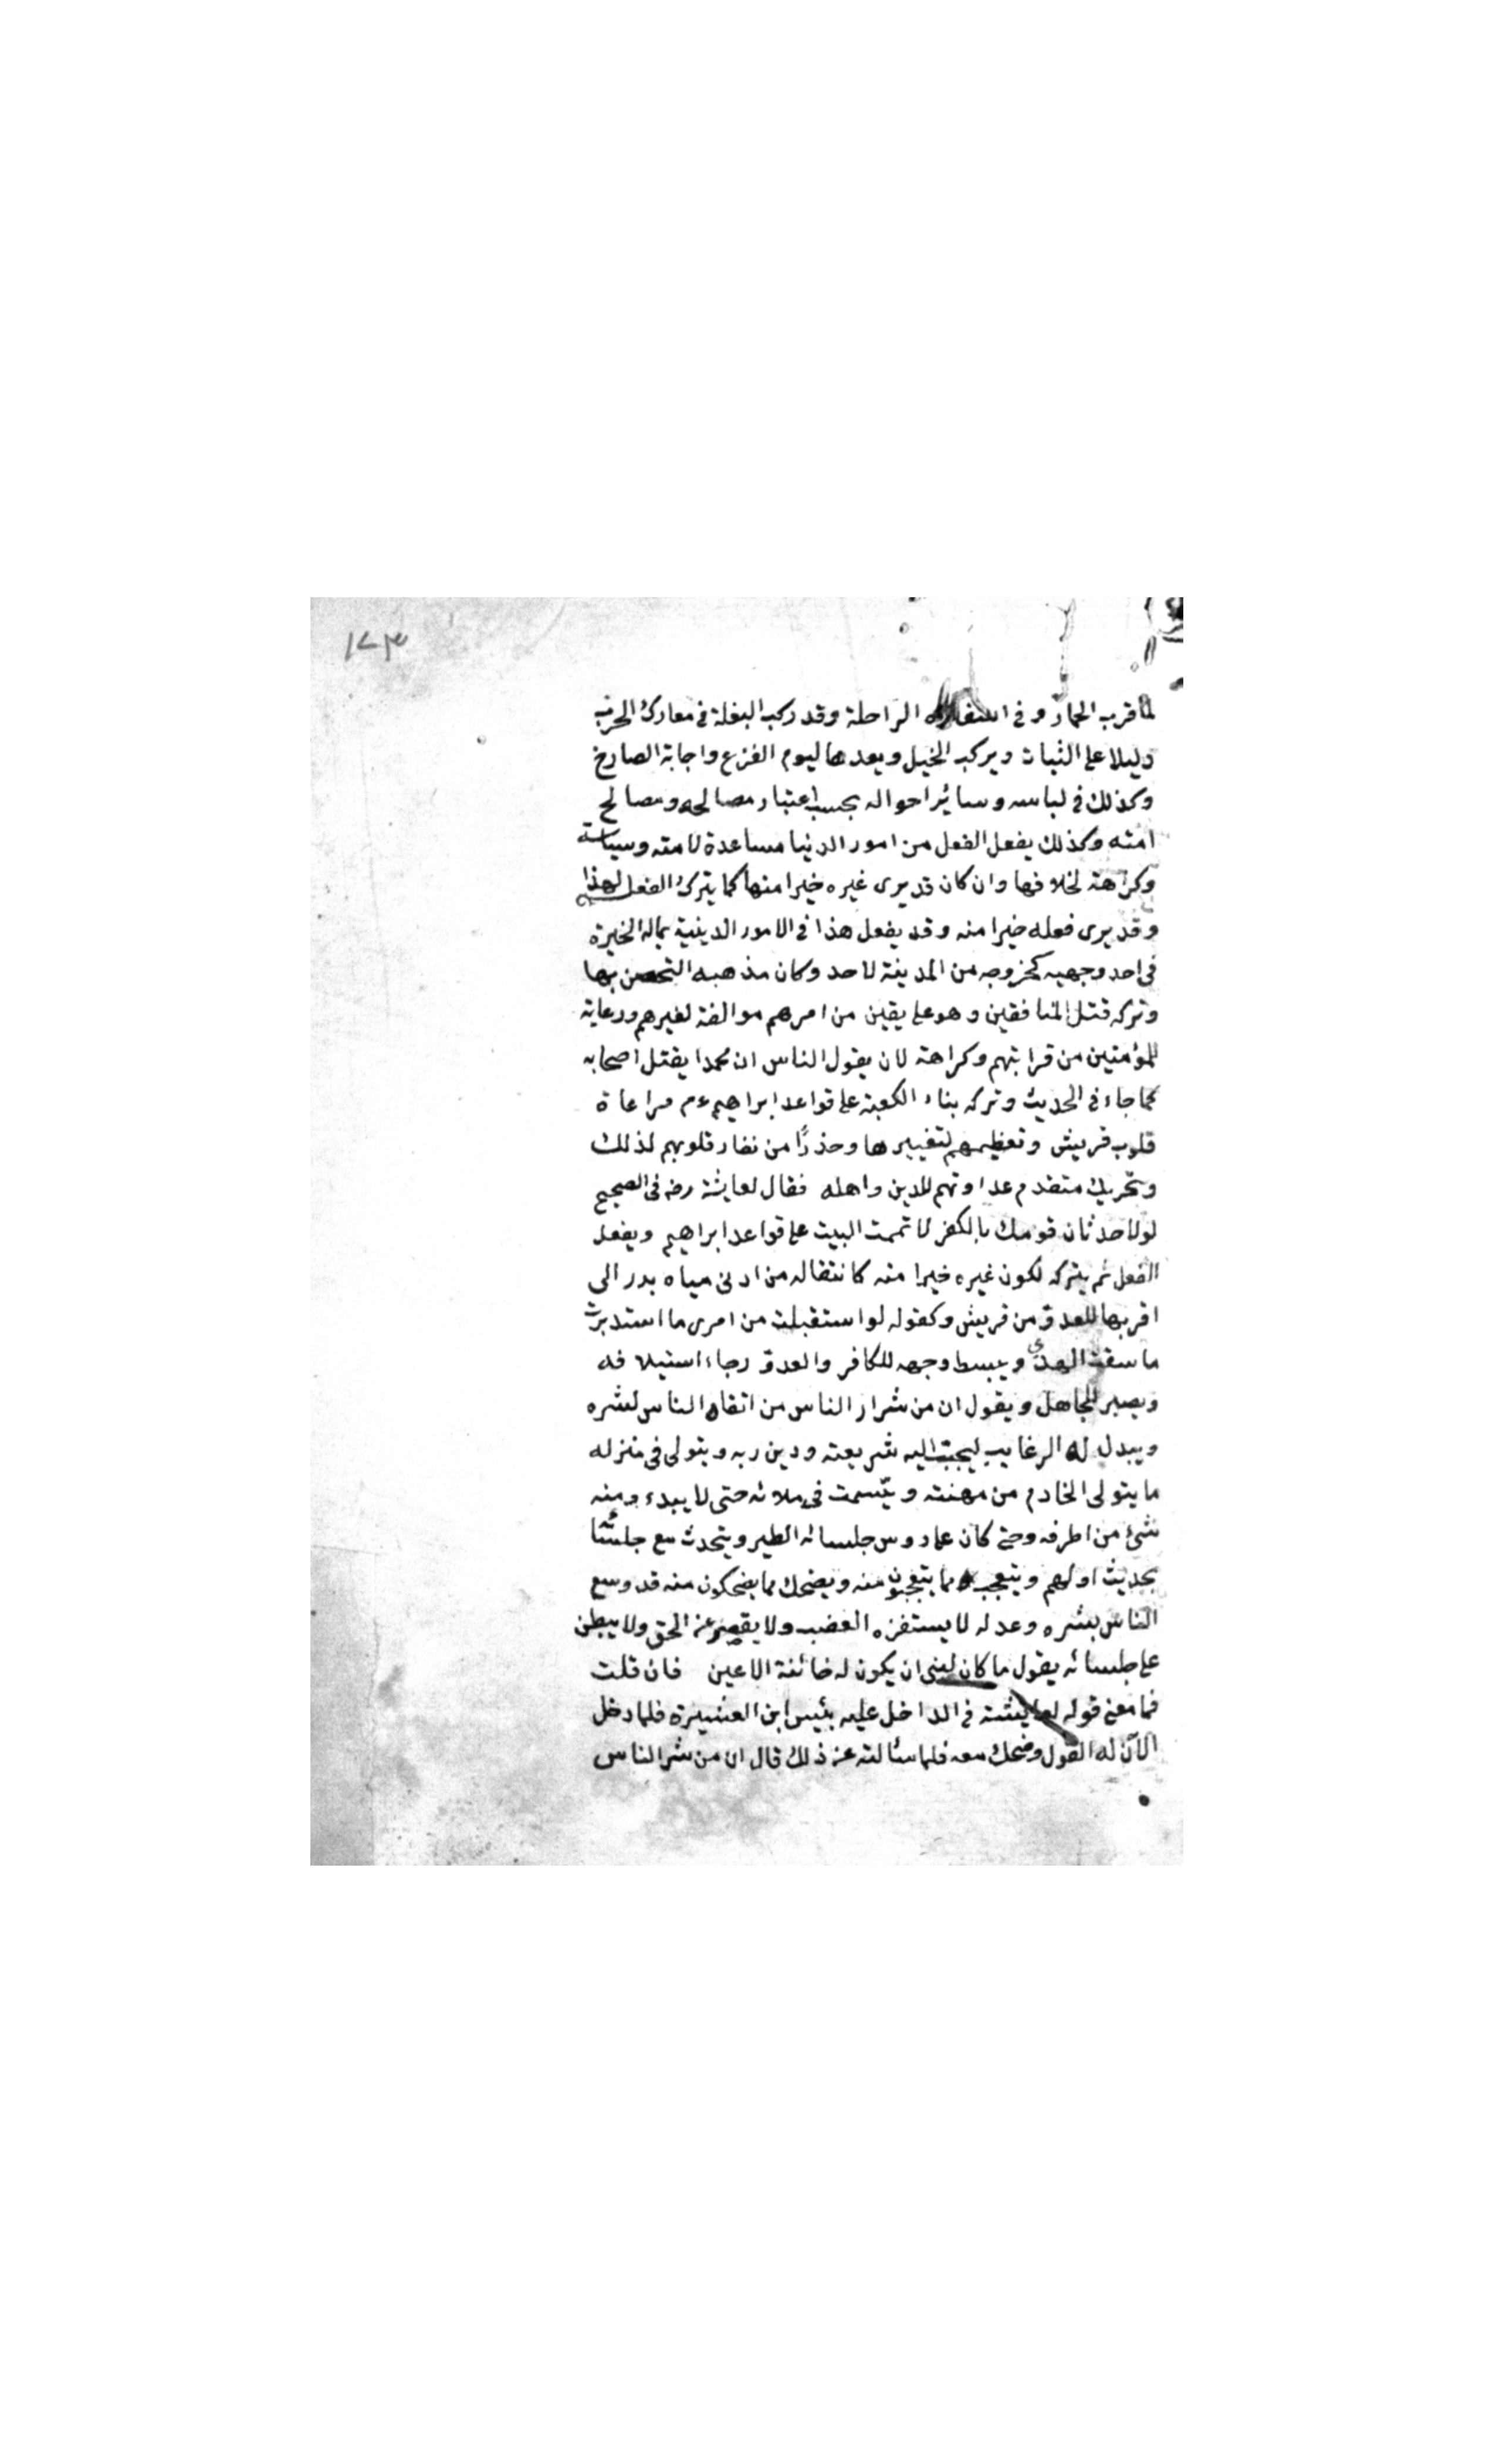 ١٧٣
لما قرب الحمار و فى اسفاره الراحلة وقد ركب البغلة فى معارك الحرب
دليلا على الثبات ويركب الخيل ويعدها ليوم الفزع واجابة الصارخ
وكذلك فى لباسه وسائر احواله بحسب اعتبار مصالحه ومصالح
امته وكذلك يفعل الفعل من امور الدنيا مساعدة لامته وسياسة
وكراهة لخلافها وان كان قد يرى غيره خيرا منها كما يترك الفعل لهذا
وقد يرى فعله خيرا منه وقد يفعل هذا فى الامور الدينية بماله الخيرة
فى احد وجهيه كخروجه من المدينة لاحد وكان مذهبه التحصن بها
وتركه قتل المنافقين وهو على يقين من امرهم موالفة لغيرهم ورعاية
للمؤمنين من قرابتهم وكراهة لان يقول الناس ان محمدا يقتل اصحابه
كما جاء فى الحديث وتركه بناء الكعبة على قواعد ابراهيم عم مراعاة
قلوب قريش وتعظيمهم لتغييرها وحذرًا من نفار قلوبهم لذلك
وتحريك متقدم عداوتهم للدين واهله فقال لعايشة رضه فى الصحيح
لولا حدثان قومك بالكفر لاتممت البيت على قواعد ابراهيم ويفعل
الفعل ثم يتركه لكون غيره خيرا منه كانتقاله من ادنى مياه بدر الى
اقربها للعدوّ من قريش وكقوله لو استقبلت من امرى ما استدبرت
ما سقت الهدى ويبسط وجهه للكافر والعدوّ رجاء استيلافه
ويصبر للجاهل ويقول ان من شرار الناس من اتقاه الناس لشره
ويبدل له الرغايب ليحبب اليه شريعته ودين ربه ويتولى فى منزله
ما يتولى الخادم من مهنته ويتسمت فى ملائه حتى لا يبدء ومنه
شئ من اطرفه وحتى كان على روس جلسائه الطير ويتحدث مع جلسائه
بحديث اولهم ويتعجب مما يتعجبون منه ويضحك مما يضحكون منه قد وسع
الناس بشره وعدله لا يستفزه الغضب ولا يقصر عن الحق ولا يبطن
على جلسائه يقول ما كان لنبى ان يكون له خائنة الاعين فان قلت
فما معنى قوله لعايشة فى الداخل عليه بئيس ابن العشيرة فلما دخل
الآن له القول وضحك معه فلما سئالته عن ذلك قال ان من شر الناس